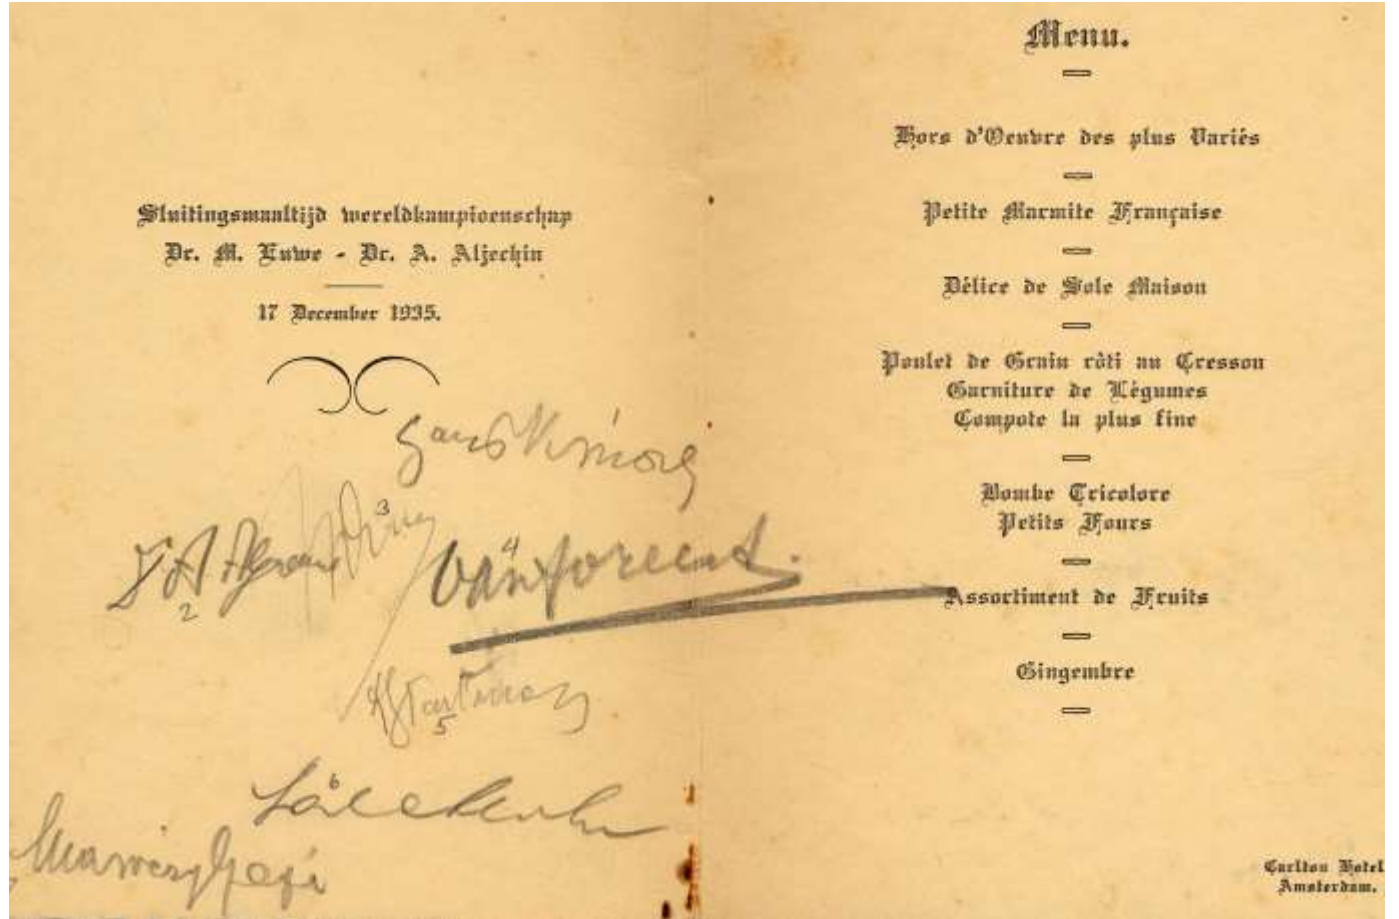 Sluitingsmaaltijd wereldkampioenschap
Dr. M. Euwe - Dr. A. Aljechin
17 December 1935.
1
Hans Kmoch
3
2
4
van Foreest.
5
6
Menu.
Hors d'Oeuvre des plus Variés
Petite Marmite Française
Délice de Sole Maison
Poulet de Grain rôti au Cresson
Garniture de Légumes
Compote la plus fine
Bombe Tricolore
Petits Fours
Assortiment de Fruits
Gingembre
Carlton Hotel
Amsterdam.